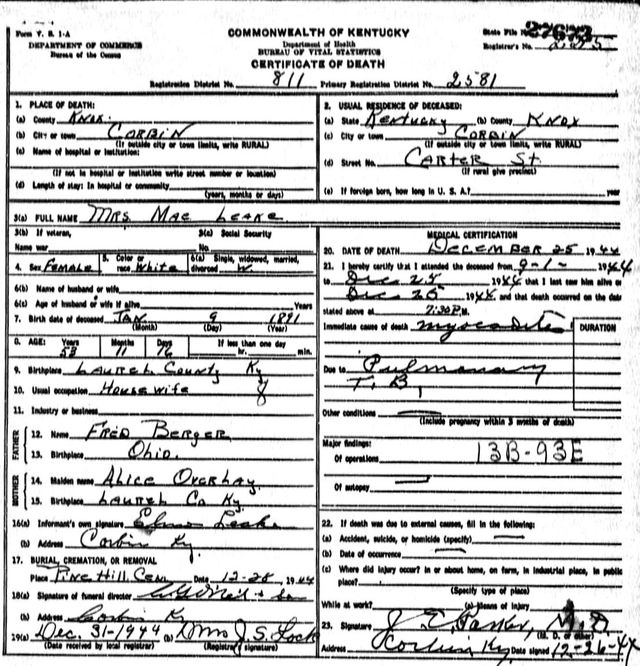 Form V. S. 1-A
DEPARTMENT OF COMMERCE
Bureau of the Census
COMMONWEALTH OF KENTUCKY
Department of Health
BUREAU OF VITAL STATISTICS
CERTIFICATE OF DEATH
State File No. 27633
Registrar's No.
Registration District No. 811 Primary Registration District No. 2581
1. PLACE OF DEATH:
(a) County Knox.
(b) City or town CORBIN
(If outside city or town limits, write RURAL)
(c) Name of hospital or institution:
(If not in hospital or institution write street number or location)
(d) Length of stay: In hospital or community
(years, months or days)
2. USUAL RESIDENCE OF DECEASED:
(a) State Kentucky (b) County KNOX
(c) City or town CORBIN
(If outside city or town limits, write RURAL)
(d) Street No. CARTER St.
(If rural give precinct)
(e) If foreign born, how long in U. S. A.? years
3(a) FULL NAME MRS. MAE LEAKE
3(b) If veteran,
Name war
3(c) Social Security
No.
4. Sex Female 5. Color or race White 6(a) Single, widowed, married, divorced W.
6(b) Name of husband or wife
6(c) Age of husband or wife if alive Years
7. Birth date of deceased JAN 9 1891
(Month) (Day) (Year)
8. AGE: Years 53 Months 11 Days 16 If less than one day hr. min.
9. Birthplace LAUREL COUNTY Ky
10. Usual occupation House wife
11. Industry or business
FATHER
12. Name FRED BERGER
13. Birthplace Ohio.
MOTHER
14. Maiden name ALICE OVERBAY
15. Birthplace LAUREL Co Ky.
16(a) Informant's own signature Leake
(b) Address Corbin Ky.
17. BURIAL, CREMATION, OR REMOVAL
Place Pine Hill Cem Date 12-28, 1944
18(a) Signature of funeral director
(b) Address Corbin Ky
19(a) Dec. 31-1944 (b) Mrs J. S. Lock
(Date received by local registrar) (Registrar's signature)
MEDICAL CERTIFICATION
20. DATE OF DEATH DECEMBER 25 1944
21. I hereby certify that I attended the deceased from 9-1- 1944
to Dec 25 1944 that I last saw him alive on
Dec 25 1944 and that death occurred on the date
stated above at 7:30 P.M.
Immediate cause of death myocarditis
DURATION
Due to Pulmonary
T. B.
Other conditions
(Include pregnancy within 3 months of death)
Major findings:
Of operations 13B-93E
Of autopsy
22. If death was due to external causes, fill in the following:
(a) Accident, suicide, or homicide (specify)
(b) Date of occurrence
(c) Where did injury occur? In or about home, on farm, in industrial place, in public
place?
(Specify type of place)
While at work? (e) Means of injury
23. Signature J. E. Parker, M. D.
(M. D. or other)
Address Corbin Ky Date signed 12-26-44